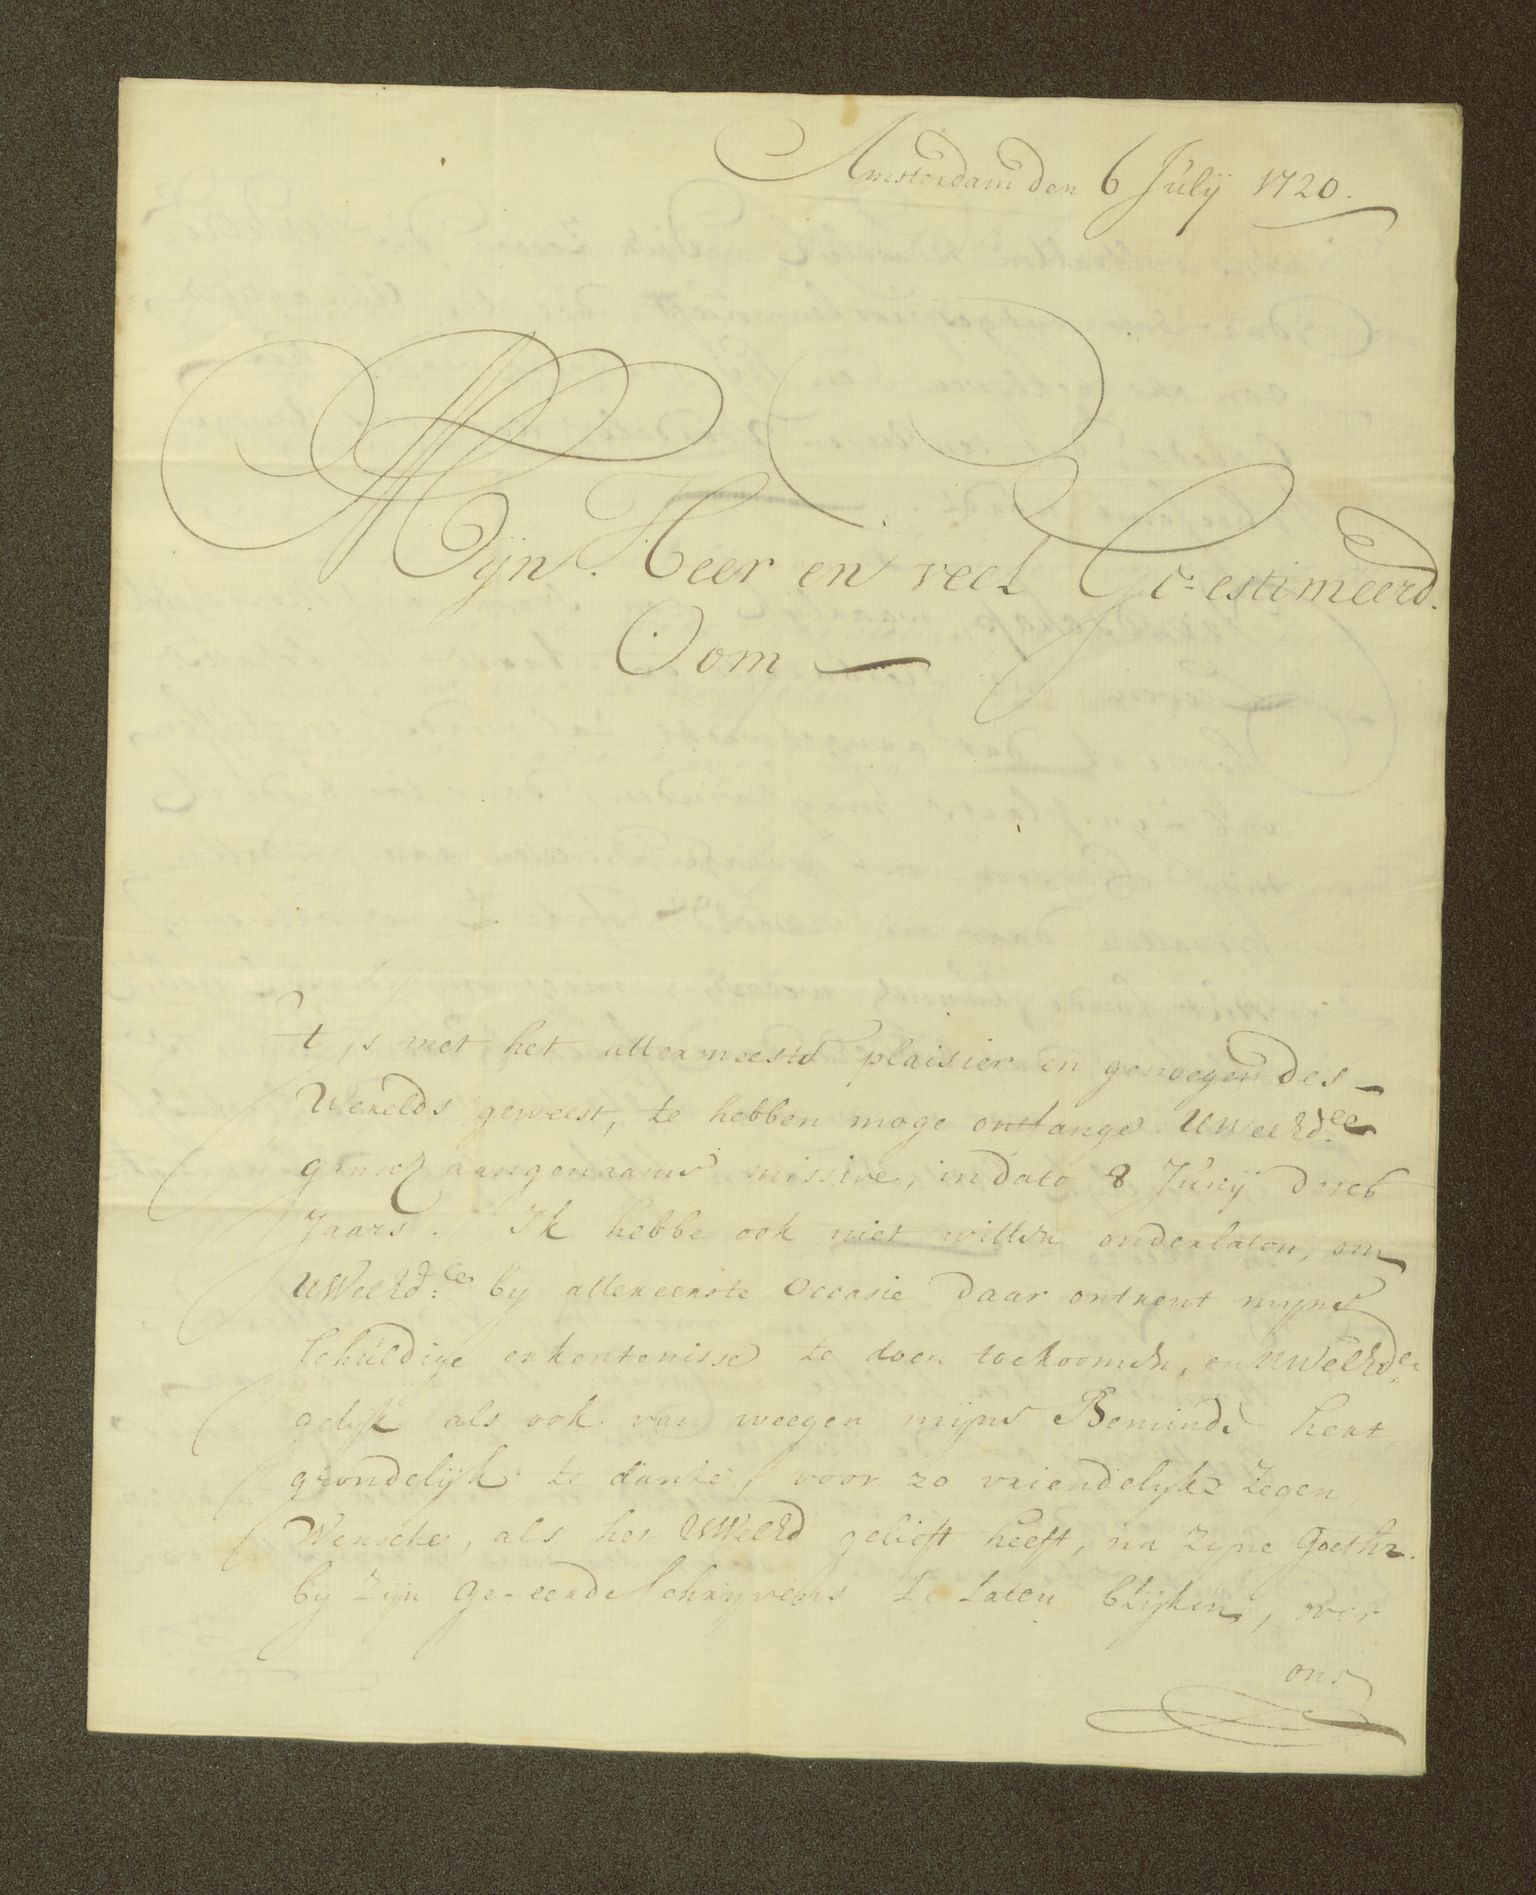 Amsterdam den 6 Julij 1720.
Mijn Heer en veel Ge-estimeerd.
Oom
't is met het allermeeste plaisier en genoegen des
Werelds geweest, te hebben moge ontfange UWeerd:ee
gansch aangenaame missive, in dato 8 Junij deses
Jaars. Ik hebbe ook niet willen onderlaten, om
UWeerd:ee by allereerste occasie daar ontrent myne
schuldige erkentenisse te doen toekoomen, en UWeerde
gelijk als ook van weegen mijne Beminde hert
grondelijk te danke, voor zo vriendelyke zegen
Wensche, als het UWeerd gelieft heeft, na zyne Goethr.
by zijn ge-eerde schryvens te laten blijken, over
ons